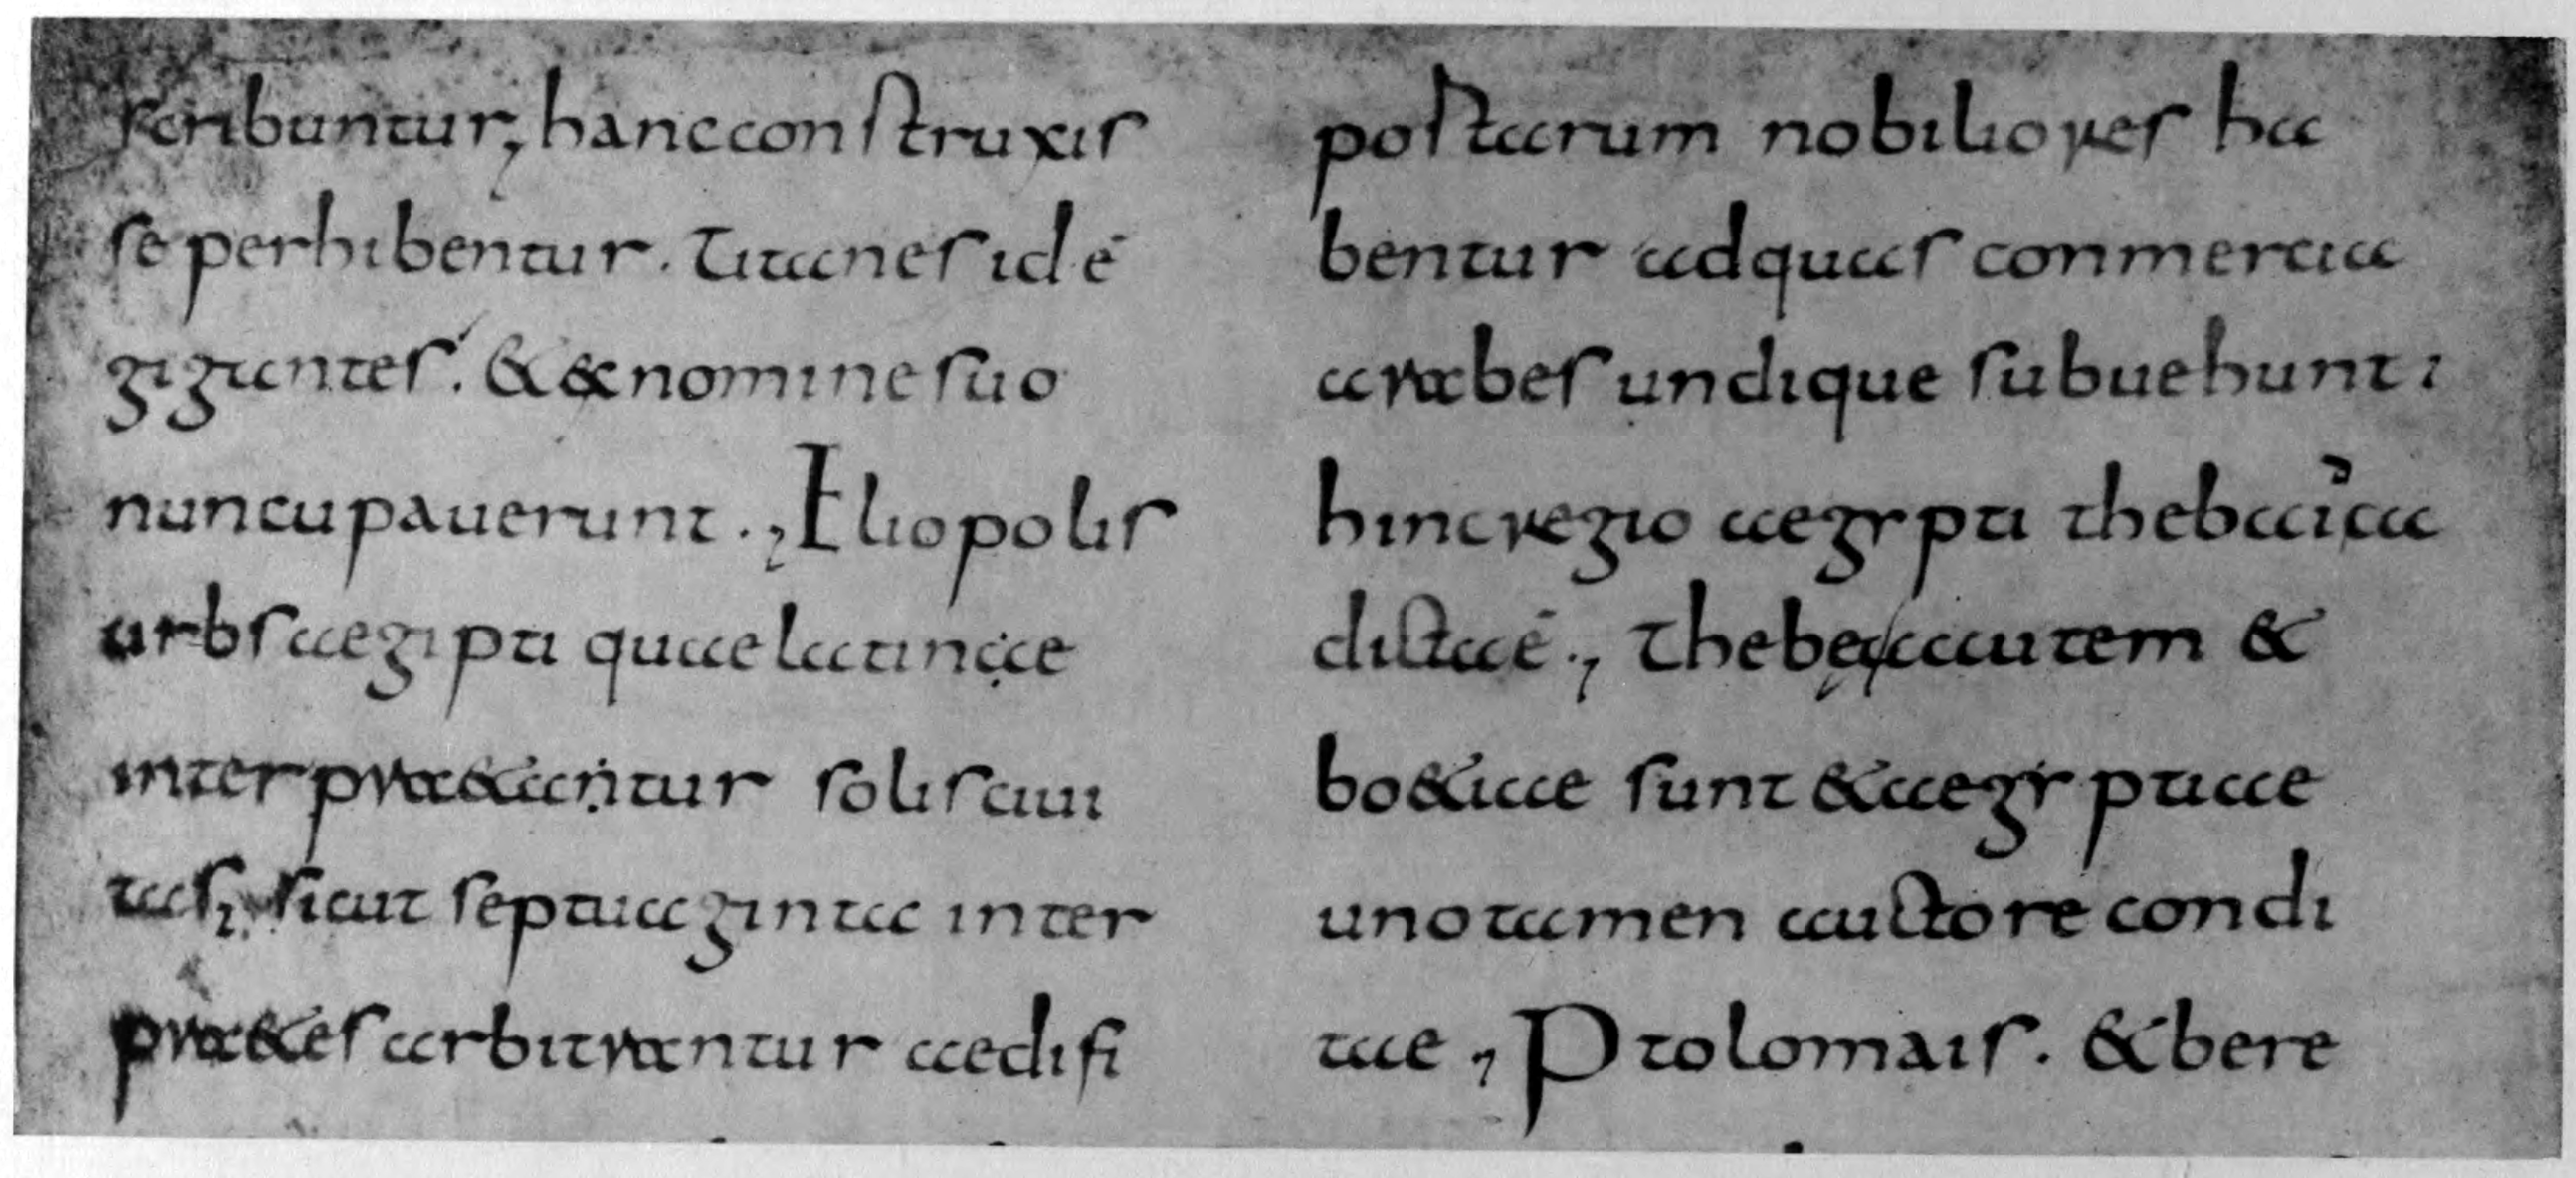 scribuntur, hanc construxis
se perhibentur. Titanes id ē
gigantes. & ex nomine suo
nuncupauerunt., Eliopolis
urbs aegipti quae latinae
interpraetantur solis ciui
tas; sicut septuaginta inter
praetes arbitrantur aedifi
postarum nobiliores ha
bentur ad quas conmercia
arabes undique subuehunt;
hinc regio aegypti thebaica
dicta ē., Thebae autem &
boetiae sunt & aegyptiae
uno tamen auctore condi
tae, Ptolomais. & bere